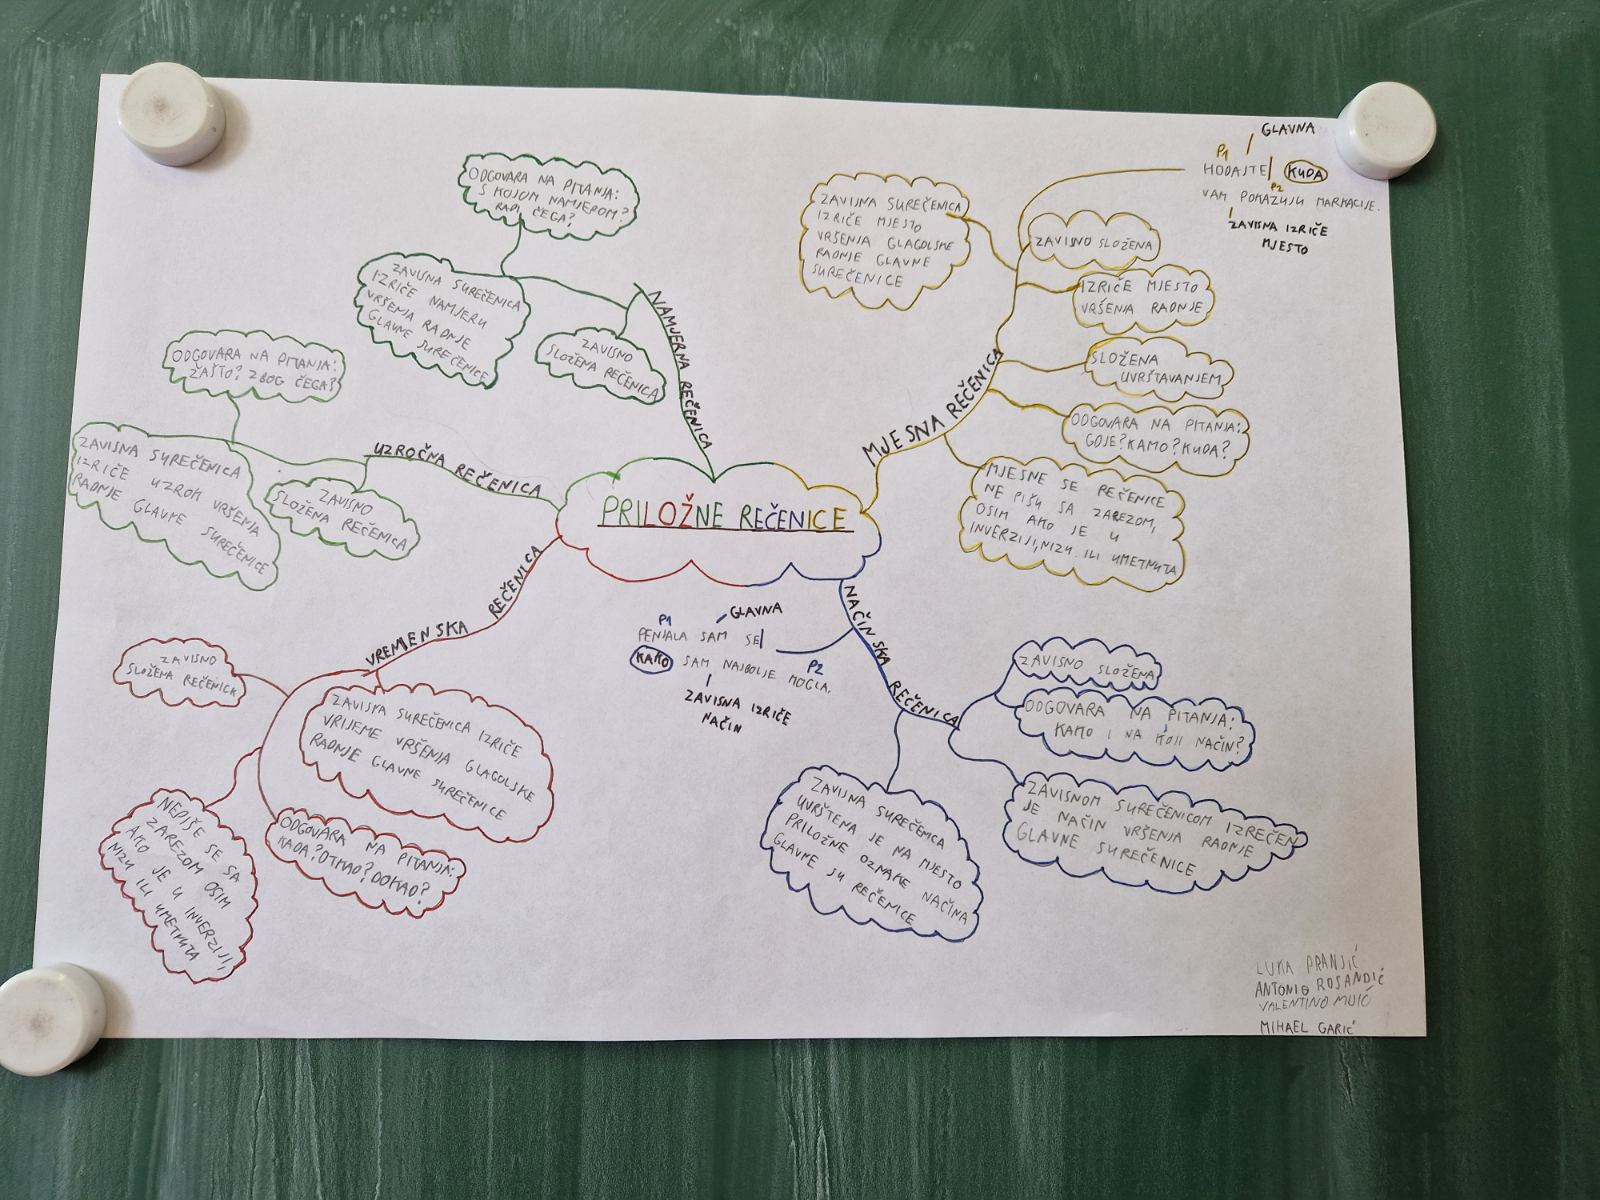 PRILOŽNE REČENICE
NAMJERNA REČENICA
ODGOVARA NA PITANJA:
S KOJOM NAMJEROM?
RADI ČEGA?
ZAVISNA SUREČENICA
IZRIČE NAMJERU
VRŠENJA RADNJE
GLAVNE SUREČENICE
ZAVISNO
SLOŽENA REČENICA
UZROČNA REČENICA
ODGOVARA NA PITANJA:
ZAŠTO? ZBOG ČEGA?
ZAVISNA SUREČENICA
IZRIČE UZROK VRŠENJA
RADNJE GLAVNE SUREČENICE
ZAVISNO
SLOŽENA REČENICA
VREMENSKA REČENICA
ZAVISNO
SLOŽENA REČENICA
ZAVISNA SUREČENICA IZRIČE
VRIJEME VRŠENJA GLAGOLSKE
RADNJE GLAVNE SUREČENICE
ODGOVARA NA PITANJA:
KADA? OTKAD? DOKAD?
NEPIŠE SE SA
ZAREZOM OSIM
AKO JE U INVERZIJI,
NIZU ILI UMETNUTA
MJESNA REČENICA
GLAVNA
P1
HODAJTE| KUDA
P2
VAM POKAZUJU MARKACIJE.
ZAVISNA IZRIČE
MJESTO
ZAVISNA SUREČENICA
IZRIČE MJESTO
VRŠENJA GLAGOLSKE
RADNJE GLAVNE
SUREČENICE
ZAVISNO SLOŽENA
IZRIČE MJESTO
VRŠENJA RADNJE
SLOŽENA
UVRŠTAVANJEM
ODGOVARA NA PITANJA:
GDJE? KAMO? KUDA?
MJESNE SE REČENICE
NE PIŠU SA ZAREZOM,
OSIM AKO JE U
INVERZIJI, NIZU ILI UMETNUTA
NAČINSKA REČENICA
GLAVNA
P1
PENJALA SAM SE|
KAKO SAM NAJBOLJE MOGLA.
P2
ZAVISNA IZRIČE
NAČIN
ZAVISNO SLOŽENA
ODGOVARA NA PITANJA:
KAKO I NA KOJI NAČIN?
ZAVISNOM SUREČENICOM IZREČEN
JE NAČIN VRŠENJA RADNJE
GLAVNE SUREČENICE
ZAVISNA SUREČENICA
UVRŠTENA JE NA MJESTO
PRILOŽNE OZNAKE NAČINA
GLAVNE SU REČENICE
LUKA PRANJIĆ
ANTONIO ROSANDIĆ
VALENTINO MUIĆ
MIHAEL GARIĆ